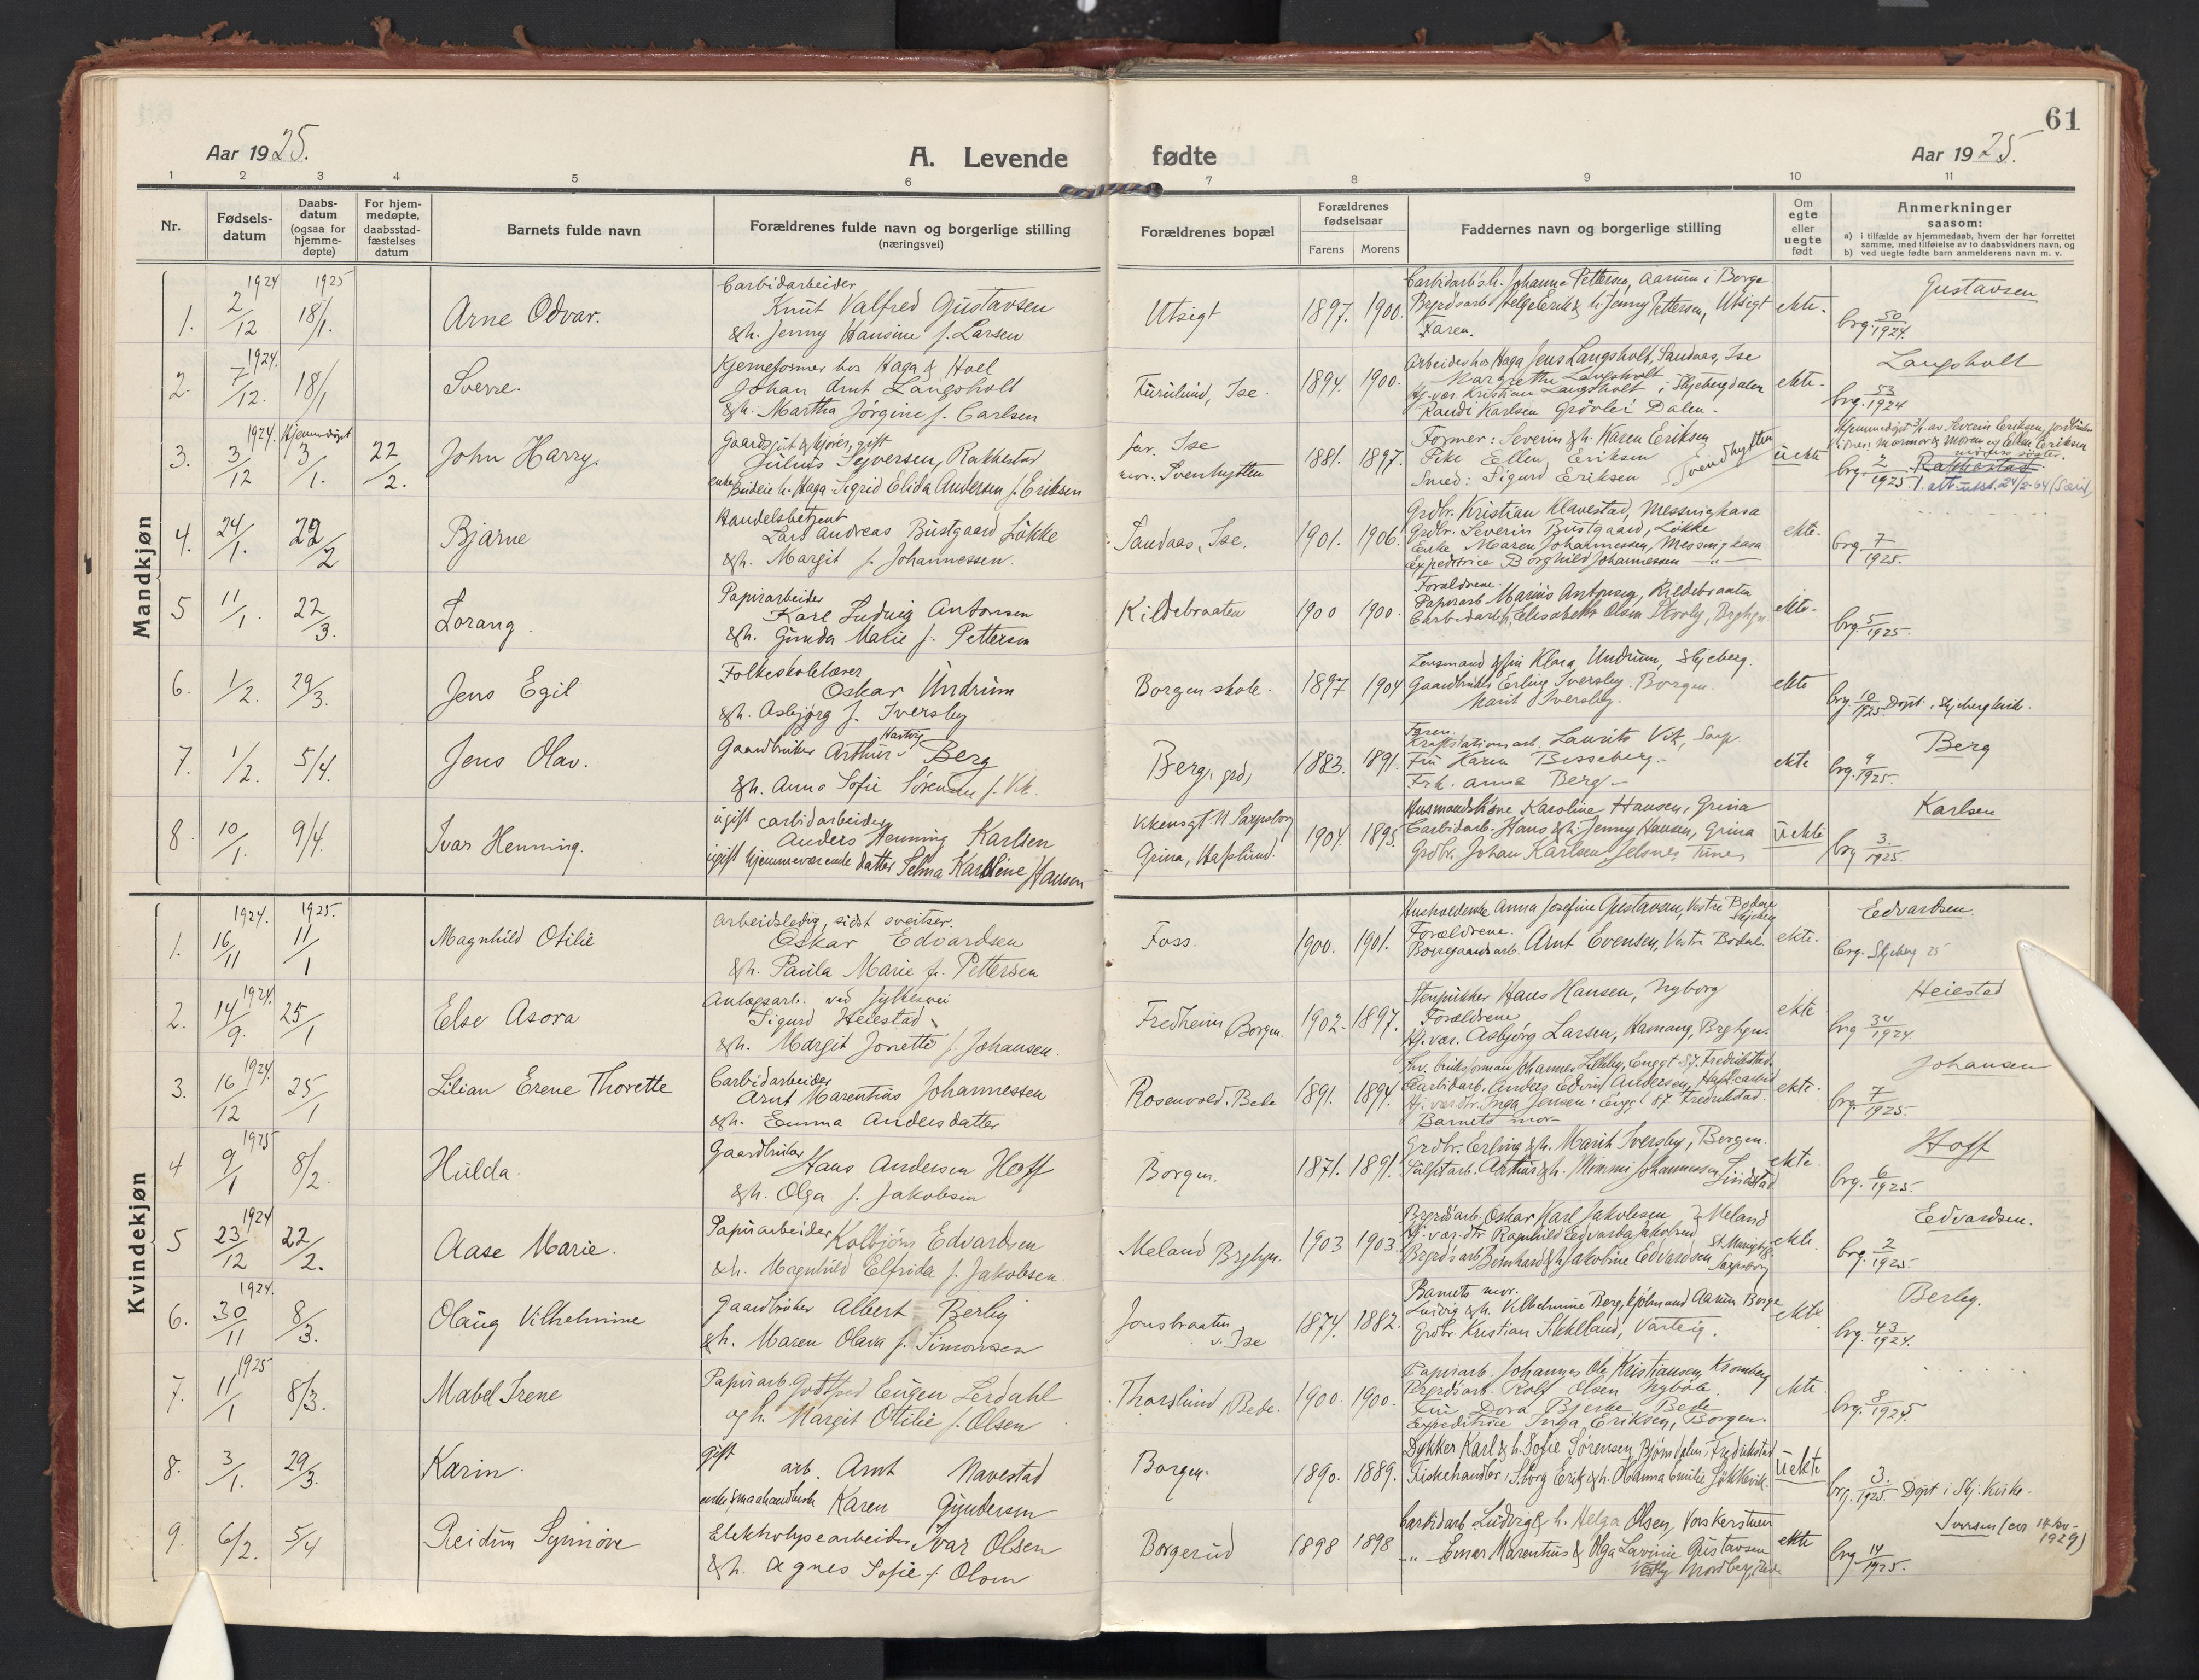 61
Aar 1925.
A. Levende fødte
Aar 1925.
1 2 3 4 5 6 7 8 9 10 11
Nr.
Fødsels-
datum
Daabs-
datum
(ogsaa for
hjemme-
døpte)
For hjem-
medøpte,
daabsstad-
fæstelses
datum
Barnets fulde navn
Forældrenes fulde navn og borgerlige stilling
(næringsvei)
Forældrenes bopæl
Forældrenes
fødselsaar
Farens Morens
Faddernes navn og borgerlige stilling
Om
egte
eller
uegte
født
Anmerkninger
saasom:
a) i tilfælde av hjemmedaab, hvem der har forrettet
samme, med tilføielse av to daabsvidners navn, og
b) ved uegte fødte barn anmelderens navn m. v.
Mandkjøn
1924 1925
1. 2/12 18/1. Arne Odvar.
Carbidarbeider
Knut Valfred Gustavsen
&h. Jenny Hansine f. Larsen
Utsigt 1897. 1900.
Carbidarb. h. Johanne Pettersen, Aarum i Borge
Brgrdsarb Helge Erik & h. Jenny Pettersen, Utsigt
Faren.
ekte.
Gustavsen
brg. 50/1924.
1924.
2. 7/12. 18/1 Sverre.
Kjerneformer hos Haga & Holl
Johan Arnt Langsholt
&h. Martha Jørgine f. Carlsen
Furulund, Ise. 1894. 1900.
Arbeider hos Haga Jens Langsholt, Sandaas, Ise
Margrethe Langsholt
Hj. vær. Kristian Langsholt i Skjebergdalen
Randi Karlsen Grövlei Dalen.
ekte.
Langsholt
brg. 53/1924
1924. Hjemmedøpt
3. 3/12 3/1. 22/2. John Harry.
Gaardsgut & kjører, gift
Julius Sejversen, Rakkestad
enke Budeie h. Haga Sigrid Elida Andersen f. Eriksen
far. Ise
mor. Svenhytten
1881. 1897.
Former: Severin & h. Karen Eriksen
Pike Ellen Eriksen
Smed: Sigurd Eriksen
Svendhytten
uekte
Hjemmedøpt av Severin Eriksen,
brg. 2/1925
Rakkestad
4. 24/1. 22/2 Bjarne
Handelsbetjent
Lars Andreas Bustgaard Løkke
&h. Margit f. Johannessen.
Sandaas, Ise. 1901. 1906.
Grdbr. Kristian Klavestad, Messinghasa
Grdbr. Severin Bustgaard, Løkke
Enke Maren Johannessen, Messinghasa
Expeditrice Borghild Johannessen —"—
ekte.
brg. 7/1925.
5 11/1. 22/3. Lorang.
Papirarbeider
Karl Ludvig Antonsen
&h. Gunda Marie f. Pettersen
Kildebraaten 1900 1900.
Forældrene.
Papirarb. Marius Antonsen, Kildebraaten
Carbidarb. h. Elisabeth Olsen Skovly, Brghgn.
ekte.
brg. 5/1925.
6. 1/2. 29/3. Jens Egil
Folkeskolelærer
Oskar Undrum
&h. Asbjørg f. Iversby
Borgen skole. 1897 1904
Lensmand & fru Klara Undrum, Skjeberg.
Gaardbruker Erling Iversby. Borgen.
Marit Iversby.
ekte
brg. 10/1925. Døpt i Skjeberg kirke.
7. 1/2. 5/4. Jens Olav.
Gaardbruker Arthur Hartvig Berg
&h. Anna Sofie Sørensen f. Vik.
Berg, grd, 1883. 1891.
Faren.
Kraftstationsarb. Laurits Vik, Sarp.
Fru Karen Bisseberg —
Frk. Anna Berg —
ekte
Berg
brg. 9/1925.
8 10/1. 9/4. Ivar Henning.
ugift carbidarbeider
Anders Henning Karlsen
ugift hjemmeværende datter Selma Karoline Hansen
Vikensgt. 11 Sarpsborg
Grina, Hafslund.
1904. 1895.
Husmandskone Karoline Hansen, Grina
Carbidarb. Hans & h. Jenny Hansen, Grina
Grdbr. Johan Karlsen Jelsnes Tune,
uekte
Karlsen
brg 3./1925.
Kvindekjøn
1924. 1925.
1. 16/11 11/1 Magnhild Otilie
Arbeidsledig, sidst sveitser.
Oskar Edvardsen
&h. Paula Marie f. Pettersen
Foss. 1900. 1901.
Husholderske Anna Josefine Gustavsen, Vestre Bodal Skjeberg
Forældrene.
Borregaardsarb. Arnt Evensen, Vestre Bodal
ekte.
Edvardsen.
brg. Skjeberg 25
1924.
2. 14/9. 25/1 Else Asora
Anlægsarb. ved fylkesvei
Sigurd Heiestad
&h. Margit Jonette f. Johansen.
Fredheim Borgen. 1902- 1897.
Stenpukker Hans Hansen, Nyborg
Forældrene
Hj. vær. Asbjørg Larsen, Hamang, Brghgn.
ekte
Heiestad
brg 34/1924.
1924.
3. 16/12 25/1 Lilian Erene Thorette
Carbidarbeider
Arnt Marentius Johannessen
&h. Emma Andersdatter
Rosenvold. Bede 1891. 1894.
Carbidarb. Anders Edvin Andersen, Hafsl. carbid
Hj. vær. dtr. Inga Jensen, Enggt 87. Fredrikstad.
Barnets mor.
ekte.
Johansen
brg. 7/1925.
1925
4 9/1 8/2. Hulda.
Gaardbruker
Hans Andersen Hoff
&h. Olga f. Jakobsen
Borgen. 1871. 1891.
Grdbr. Erling & h. Marit Iversby, Borgen.
Sulfitarb. Arthur & h. Mimmi Johannessen, Lindstad
ekte.
Hoff
brg. 6/1925.
1924
5 23/12 22/2. Aase Marie.
Papirarbeider Kolbjörn Edvardsen
&h. Magnhild Elfrida f. Jakobsen.
Meland Brghgn. 1903 1903.
Brgrdsarb. Oskar Karl Jakobsen Meland
Hj. vær. dtr. Ragnhild Edvarda Jakobsen
Brgrdsarb Bernhard & h. Jakobine Edvardsen St. Mariegt 98 Sarpsborg
ekte.
Edvardsen.
brg. 2/1925.
1924.
6. 30/11 8/3. Olaug Vilhelmine
Gaardbruker Albert Berby
&h. Maren Olava f. Simonsen
Jonsbraaten
v. Ise
1874. 1882.
Barnets mor.
Ludvig & h. Vilhelmine Berg, kjøbmand Aarum Borge
Grdbr. Kristian Skehlland, Varteig.
ekte
Berby.
brg. 43/1924.
1925
7. 11/1 8/3. Mabel Irene
Papirarb. Gottfred Eugen Lerdahl
og h. Margit Otilie f. Olsen
Thorslund, Bede. 1900. 1900.
Papirarb. Johannes Ole Kristiansen Kronberg
Brgrdsarb. Rolf Olsen Nybøle.
Fru Dora Bjerke Bede
Expeditrice Inga Eriksen, Borgen.
ekte
brg. 8/1925.
8. 3/1. 29/3. Karin.
gift
arb. Arnt Navestad
enke smaahandlerske Karen Gundersen
Borgen. 1890. 1889.
Dykker Karl & h. Sofie Sørensen, Bjørndalen, Fredrikstad
Fiskehandler i Sarp Erik & h. Johanna Emilie Løkkevik.
uekte
brg. 3./1925. Døpt i Skj. Kirke.
9. 6/2. 5/4 Reidun Synnøve
Elektrolysearbeider Ivar Olsen
&h. Agnes Sofie f. Olsen
Borgerud 1898 1898
Carbidarb. Ludvig & h. Helga Olsen, Vorskerstuen
—"— Einar Marentius & Olga Lavinie Gustavsen
Vestby Nordberg,
ekte
Iversen
1929)
brg 14/1925.